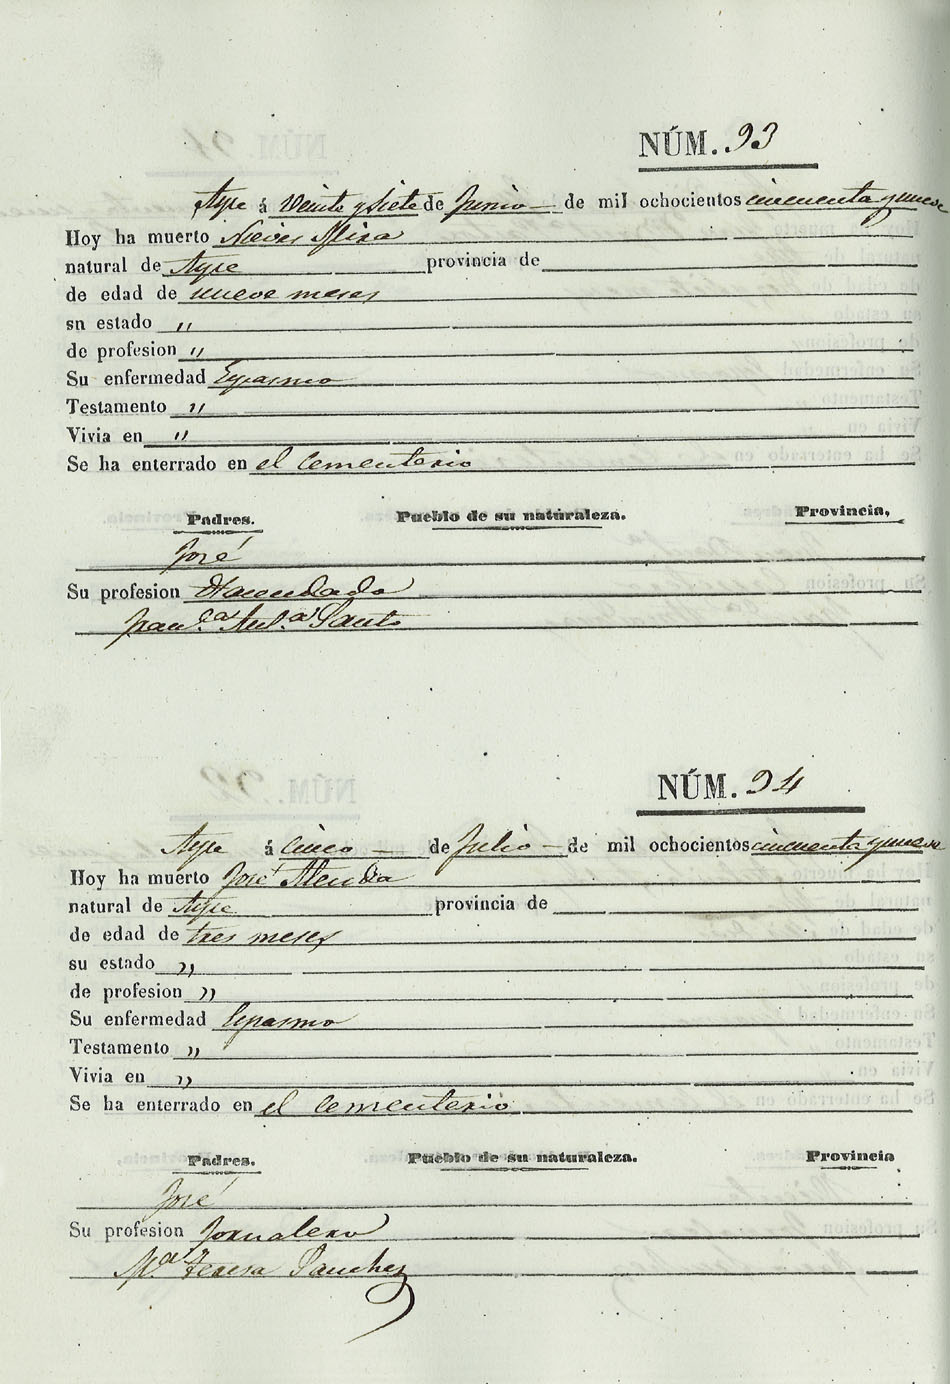 NÚM. 93
Aspe á Veinte y Siete de Junio de mil ochocientos cincuenta y nueve
Hoy ha muerto Nieves Mira
natural de Aspe provincia de
de edad de nueve meses
su estado "
de profesion "
Su enfermedad Espasmo
Testamento "
Vivia en "
Se ha enterrado en el cementerio
Padres. Pueblo de su naturaleza. Provincia,
José
Su profesion Hacendado
Fran.ca Ant.a Santo
NÚM. 94
Aspe á cinco de Julio de mil ochocientos cincuenta y nueve
Hoy ha muerto José
natural de Aspe provincia de
de edad de tres meses
su estado "
de profesion "
Su enfermedad Espasmo
Testamento "
Vivia en "
Se ha enterrado en el cementerio
Padres. Pueblo de su naturaleza. Provincia
José
Su profesion Jornalero
M.a Teresa Sanchez